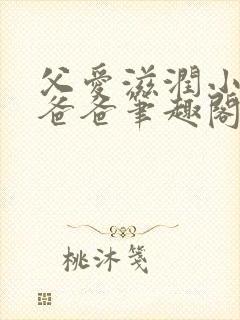 父爱滋润小
爸爸笔趣阁
桃沐笺